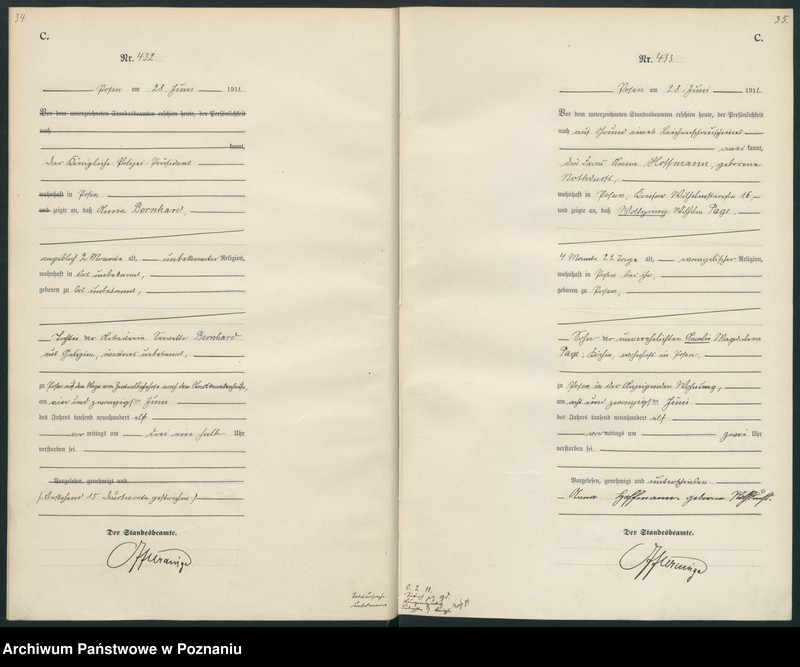 34.
C.
Nr. 432.
Posen am 28 Juni 1911.
Vor dem unterzeichneten Standesbeamten erschien heute, der Persönlichkeit
nach
kannt,
der Königliche Polizei-Präsident
wohnhaft in Posen
und zeigte an, daß Anna Bernhard,
angeblich 2 Monate alt, unbekannter Religion,
wohnhaft in Ort unbekannt,
geboren zu Ort unbekannt,
Tochter der Arbeiterin Bernhard
aus Galizien, unbekannt,
zu Posen auf dem Wege vom nach dem
am vier und zwanzigsten Juni
des Jahres tausend neunhundert elf
vor mittags um drei ein halb Uhr
verstorben sei.
Vorgelesen, genehmigt und
(Vorstehend 15 Druckworte gestrichen.)
Der Standesbeamte.
unbekannt
35.
C.
Nr. 433.
Posen am 28 Juni 1911.
Vor dem unterzeichneten Standesbeamten erschien heute, der Persönlichkeit
nach auf Grund eines
aner kannt,
die Frau Anna Hoffmann, geborene
wohnhaft in Posen, Kaiser Wilhelmstraße 16,
und zeigte an, daß Wilhelm Page,
4 Monate 23 Tage alt, evangelischer Religion,
wohnhaft in Posen bei ihr,
geboren zu Posen,
Sohn der unverehelichten Magdalena
Page, Köchin, wohnhaft in Posen,
zu Posen in der Wohnung,
am acht und zwanzigsten Juni
des Jahres tausend neunhundert elf
vor mittags um zwei Uhr
verstorben sei.
Vorgelesen, genehmigt und unterschrieben
Anna Hoffmann geborene
Der Standesbeamte.
Archiwum Państwowe w Poznaniu